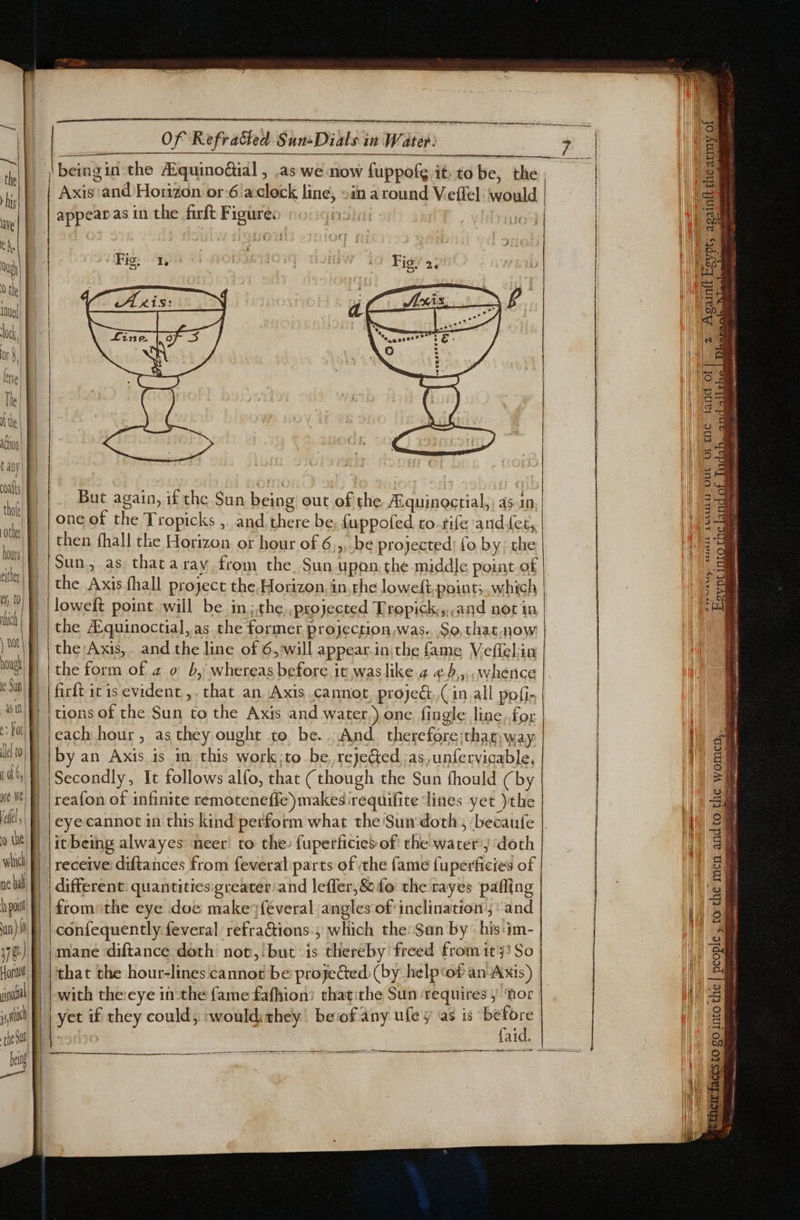 Of Refracted Sun-Dials in Water. 7
being in the Æquinoctial, as we now ſuppoſe it to be, the
Axis and Horizon or 6 a clock line, in a round Veſſel would
appear as in the firſt Figure.
Fig. 1. Fig. 2.
Axis: a Axis b
Line of 3 E
o
But again, if the Sun being out of the Æquinoctial, as in
one of the Tropicks, and there be ſuppoſed to riſe and ſet,
then ſhall the Horizon or hour of 6, be projected ſo by the
Sun, as that a ray from the Sun upon the middle point of
the Axis ſhall project the Horizon in the loweſt point, which
loweſt point will be in the projected Tropick, and not in
the Æquinoctial, as the former projection was. So that now
the Axis, and the line of 6, will appear in the ſame Veſſel in
the form of a o b, whereas before it was like a e b, whence
firſt it is evident, that an Axis cannot project (in all poſi-
tions of the Sun to the Axis and water) one ſingle line, for
each hour, as they ought to be. And therefore that way
by an Axis is in this work to be rejected as unſervicable,
Secondly, It follows alſo, that (though the Sun ſhould (by
reaſon of infinite remoteneſſe) makes requiſite lines yet) the
eye cannot in this kind perform what the Sun doth; becauſe
it being alwayes neer to the ſuperficies of the water, doth
receive diſtances from ſeveral parts of the ſame ſuperficies of
different quantities greater and leſſer, & ſo the rayes paſſing
from the eye doe make ſeveral angles of inclination, and
conſequently ſeveral refractions, which the Sun by his im-
mane diſtance doth not, but is thereby freed from it: So
that the hour-lines cannot be projected (by help of an Axis)
with the eye in the ſame faſhion that the Sun requires, nor
yet if they could, would they be of any uſe, as is before
ſaid.